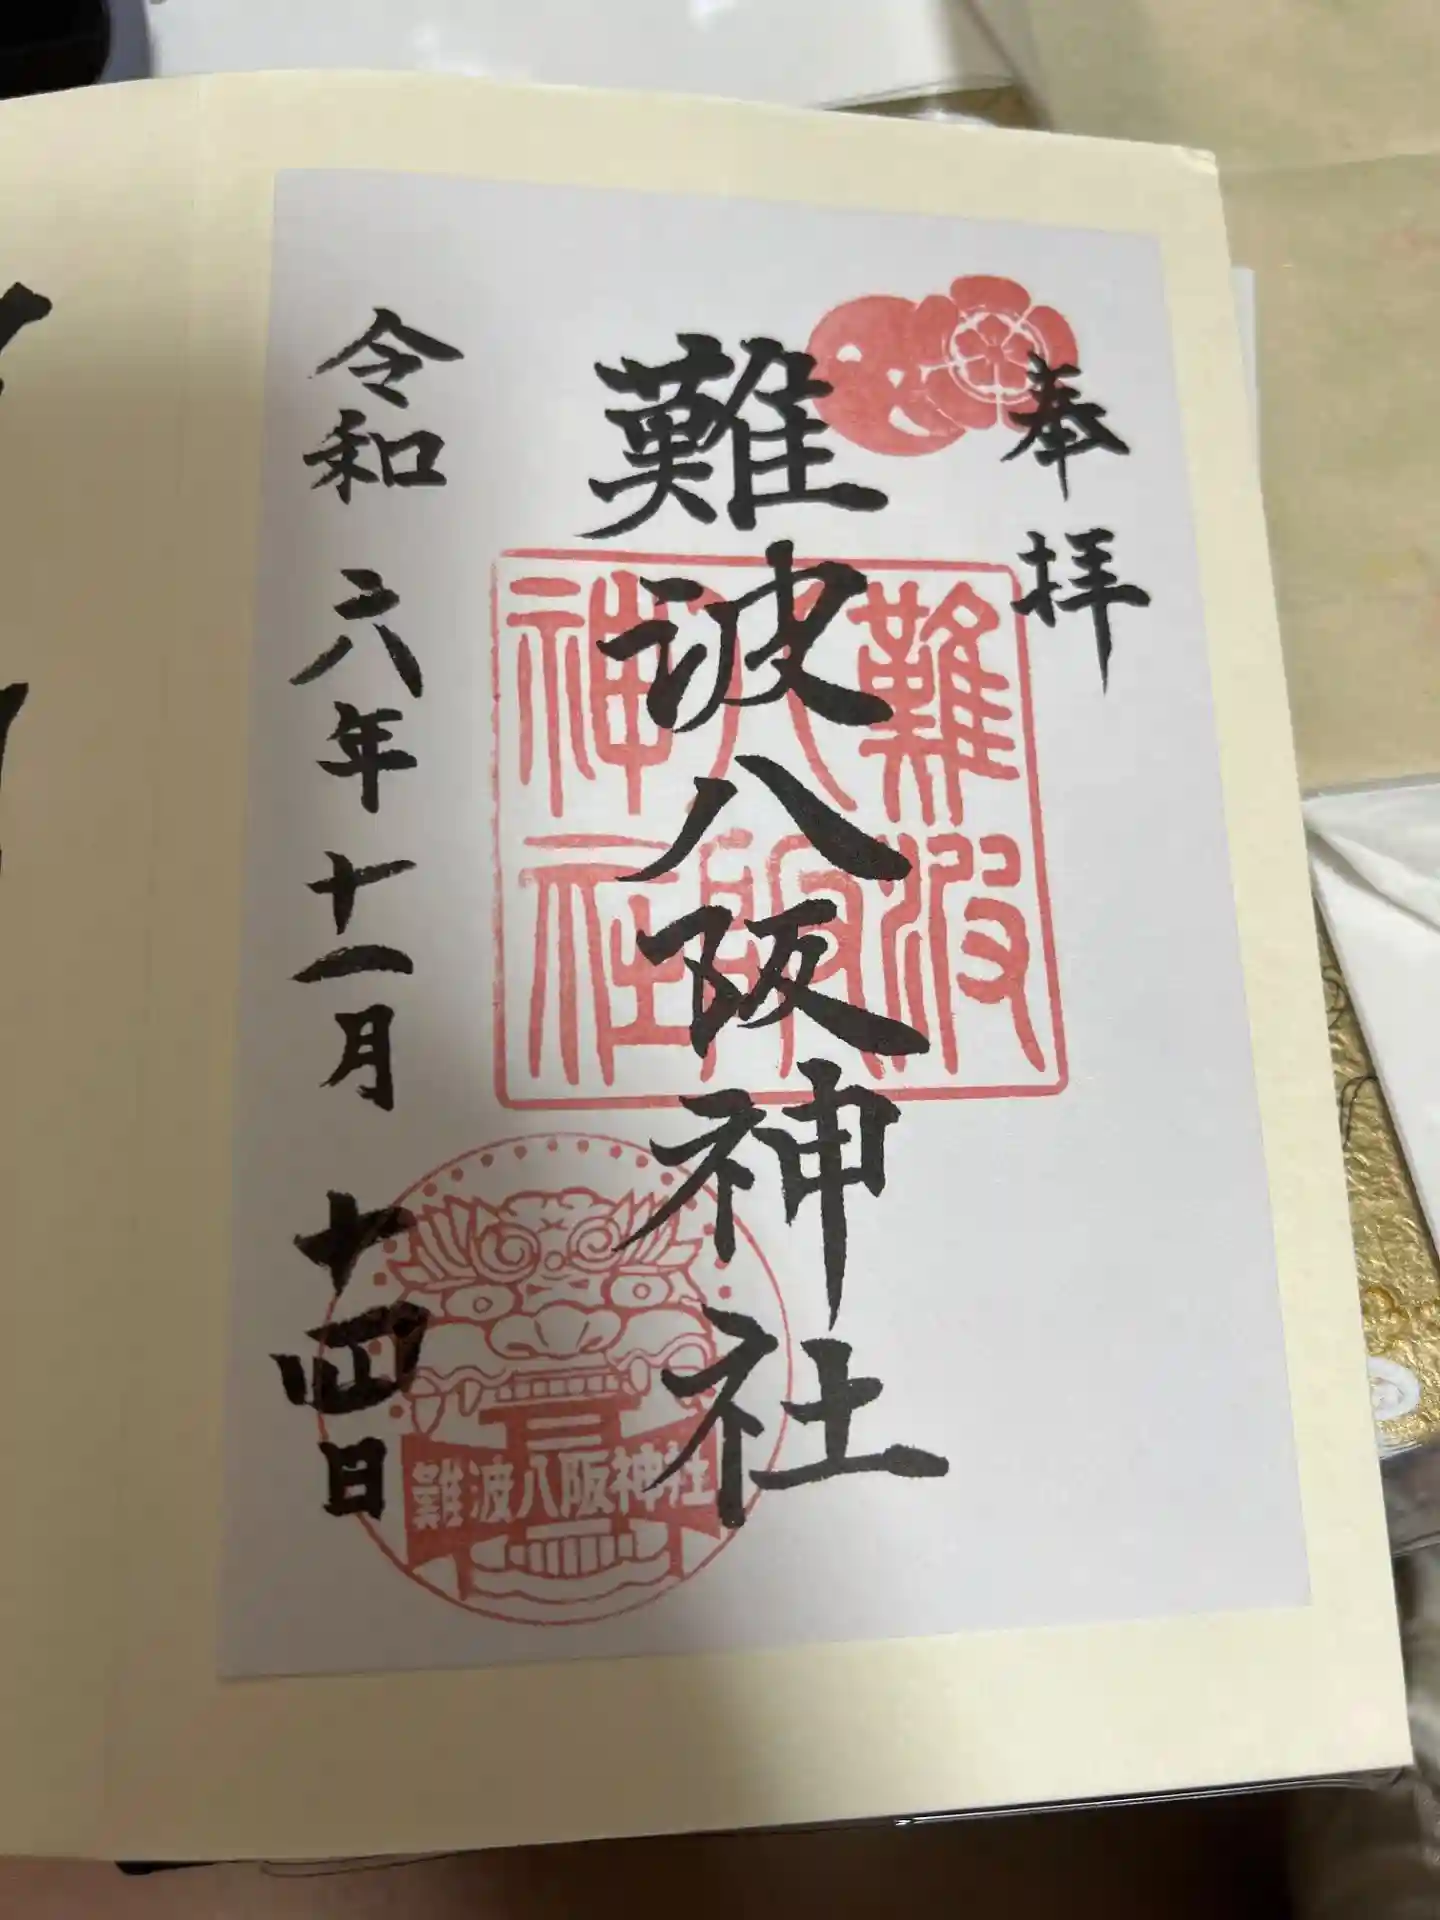 奉拝
難波八阪神社
難波
八阪
神社
令和六年十一月十四日
難波八阪神社